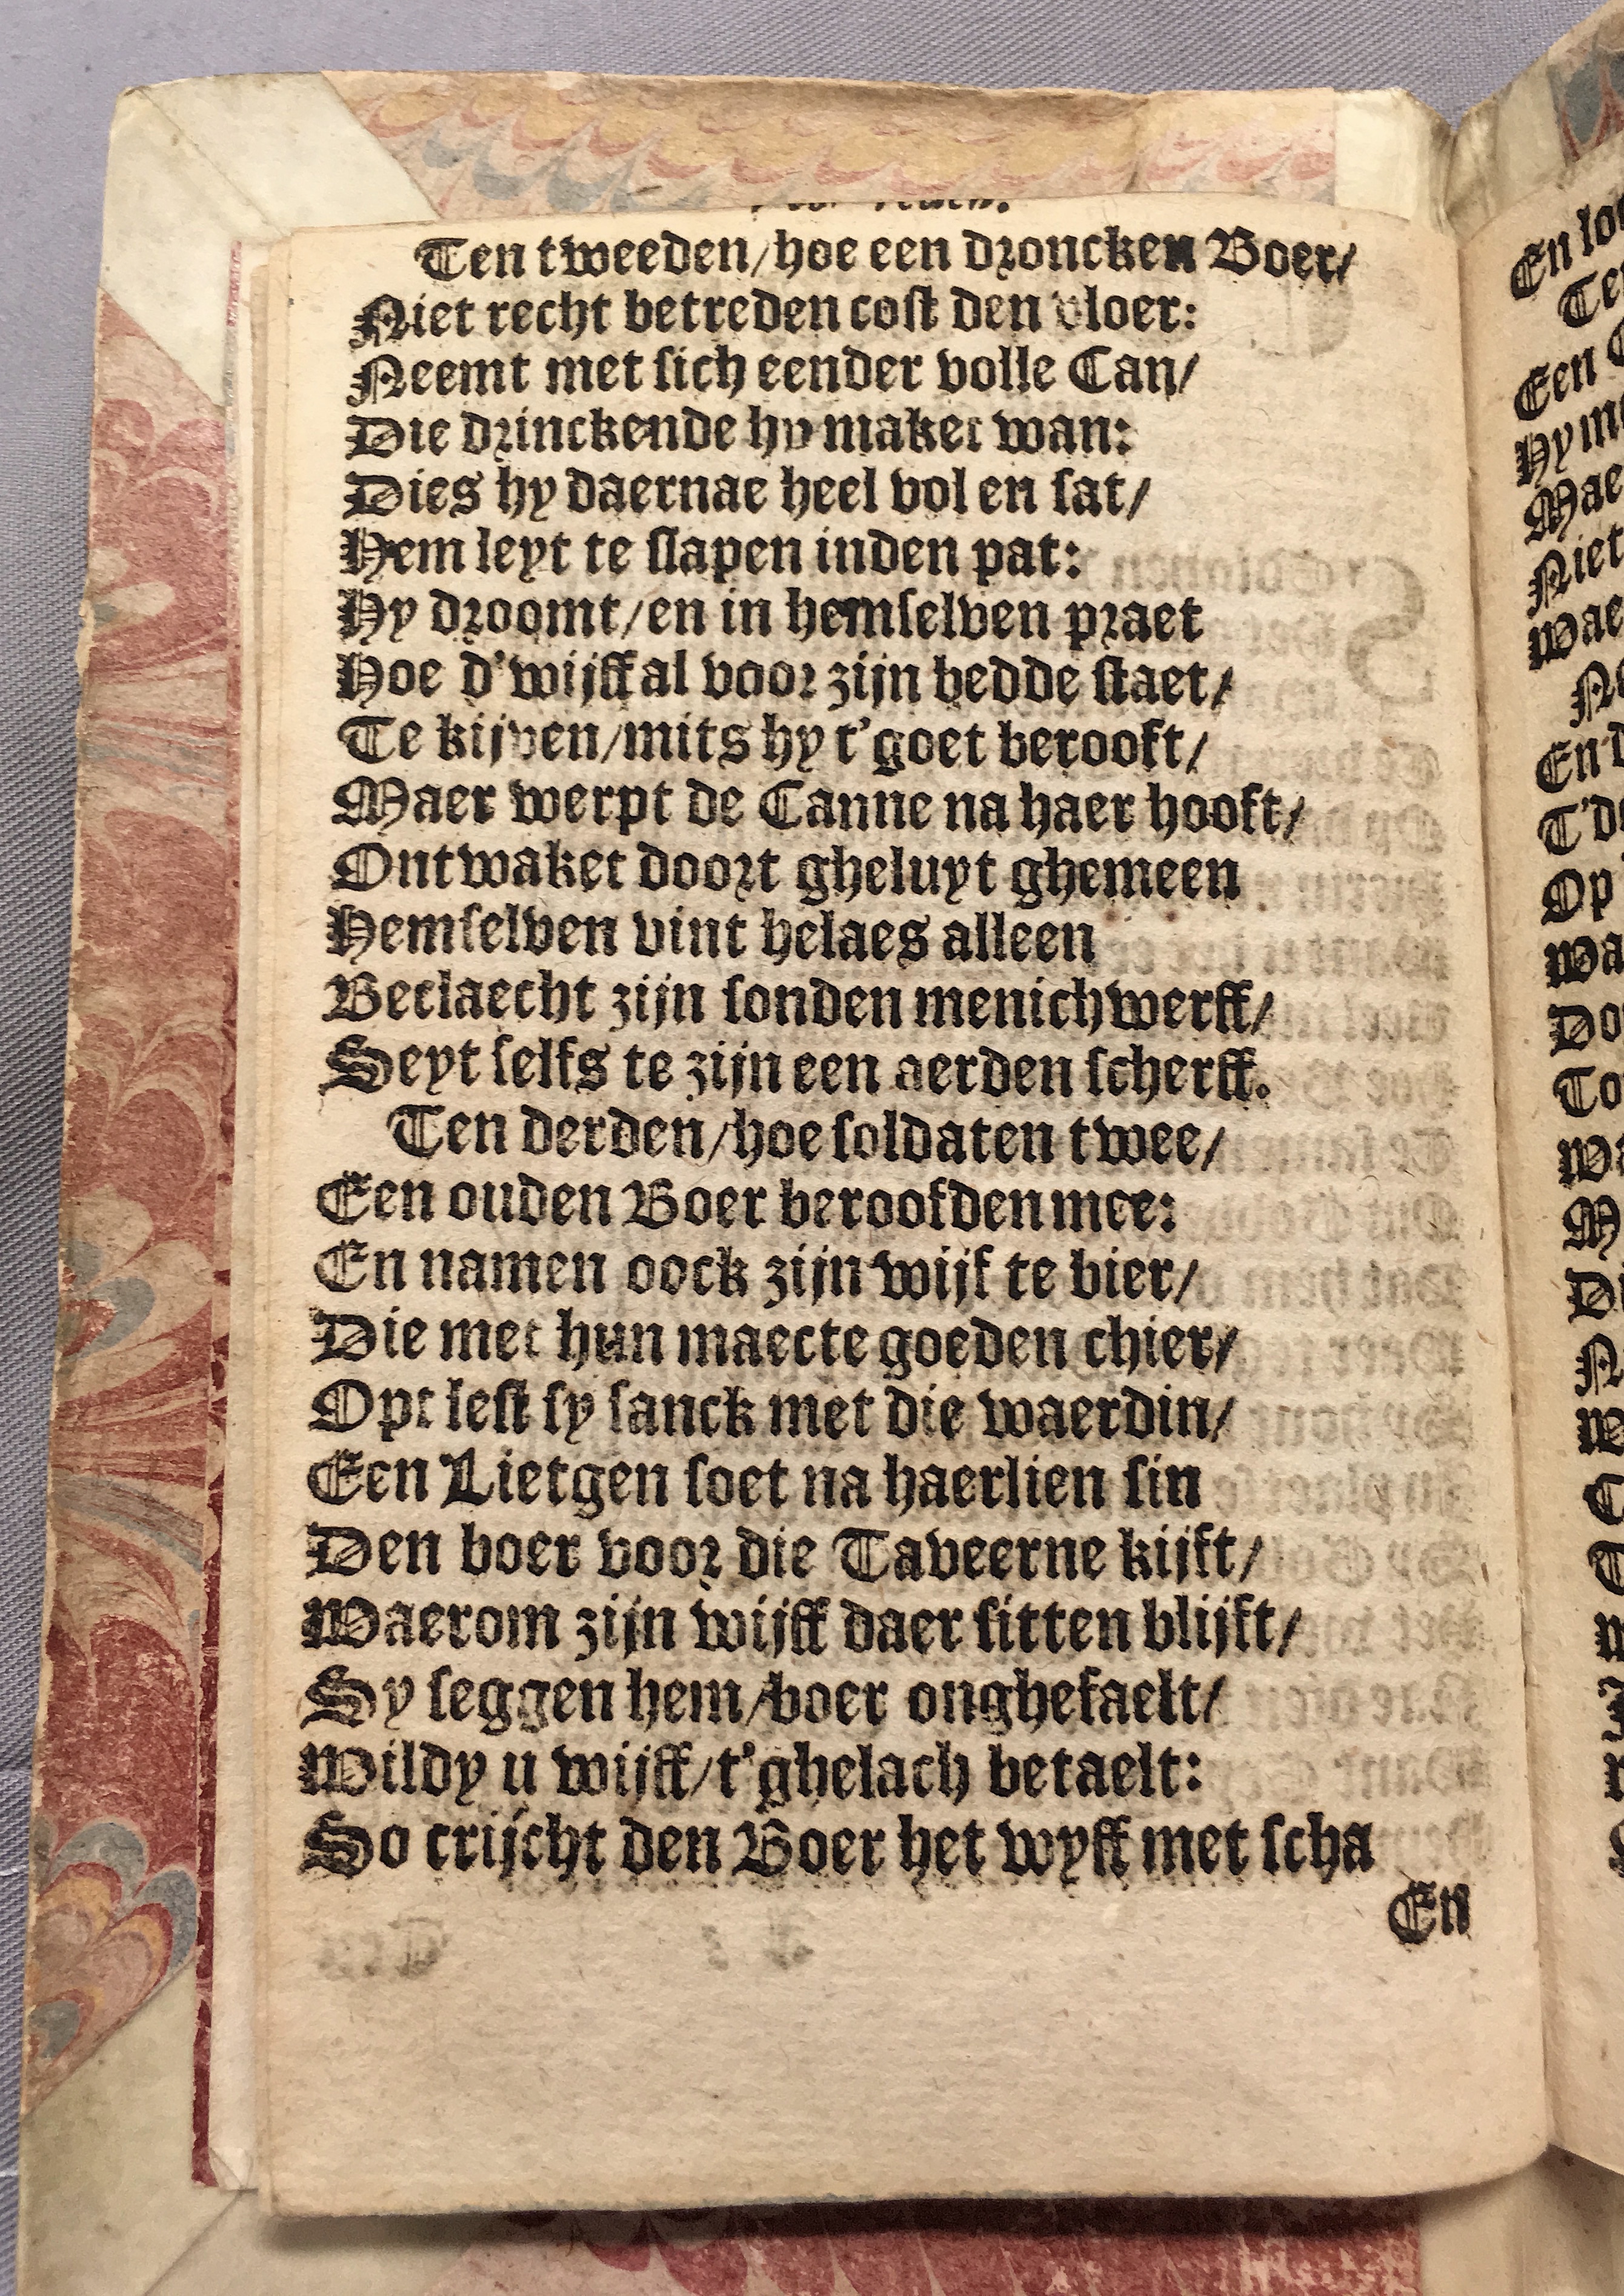 Ten tweeden/hoe een droncken Boer/
Niet recht betreden cost den vloer:
Neemt met sich eender volle Can/
Die drinckende hy maket wan:
Dies hy daernae heel vol en sat/
Hem leyt te slapen inden pat:
Hy droomt/en in hemselven praet
Hoe d'wijff al voor zijn bedde staet/
Te kijven/mits hy t'goet berooft/
Maer werpt de Canne na haer hooft/
Ontwaket doort gheluyt ghemeen
Hemselven vint helaes alleen
Beclaecht zijn sonden menichwerff/
Seyt selfs te zijn een aerden scherff.
Ten derden/hoe soldaten twee/
Een ouden Boer beroofden mee:
En namen oock zijn wijf te bier/
Die met hun maecte goeden chier/
Opt lest sy sanck met die waerdin/
Een Lietgen soet na haerlien sin
Den boer voor die Taveerne kijft/
Waerom zijn wijff daer sitten blijft/
Sy seggen hem/boer onghefaelt/
Wildy u wijff/t'ghelach betaelt:
So crijcht den Boer het wyff met scha
En
En
Een
Hy
Mae
Niet
Wae
En
Op